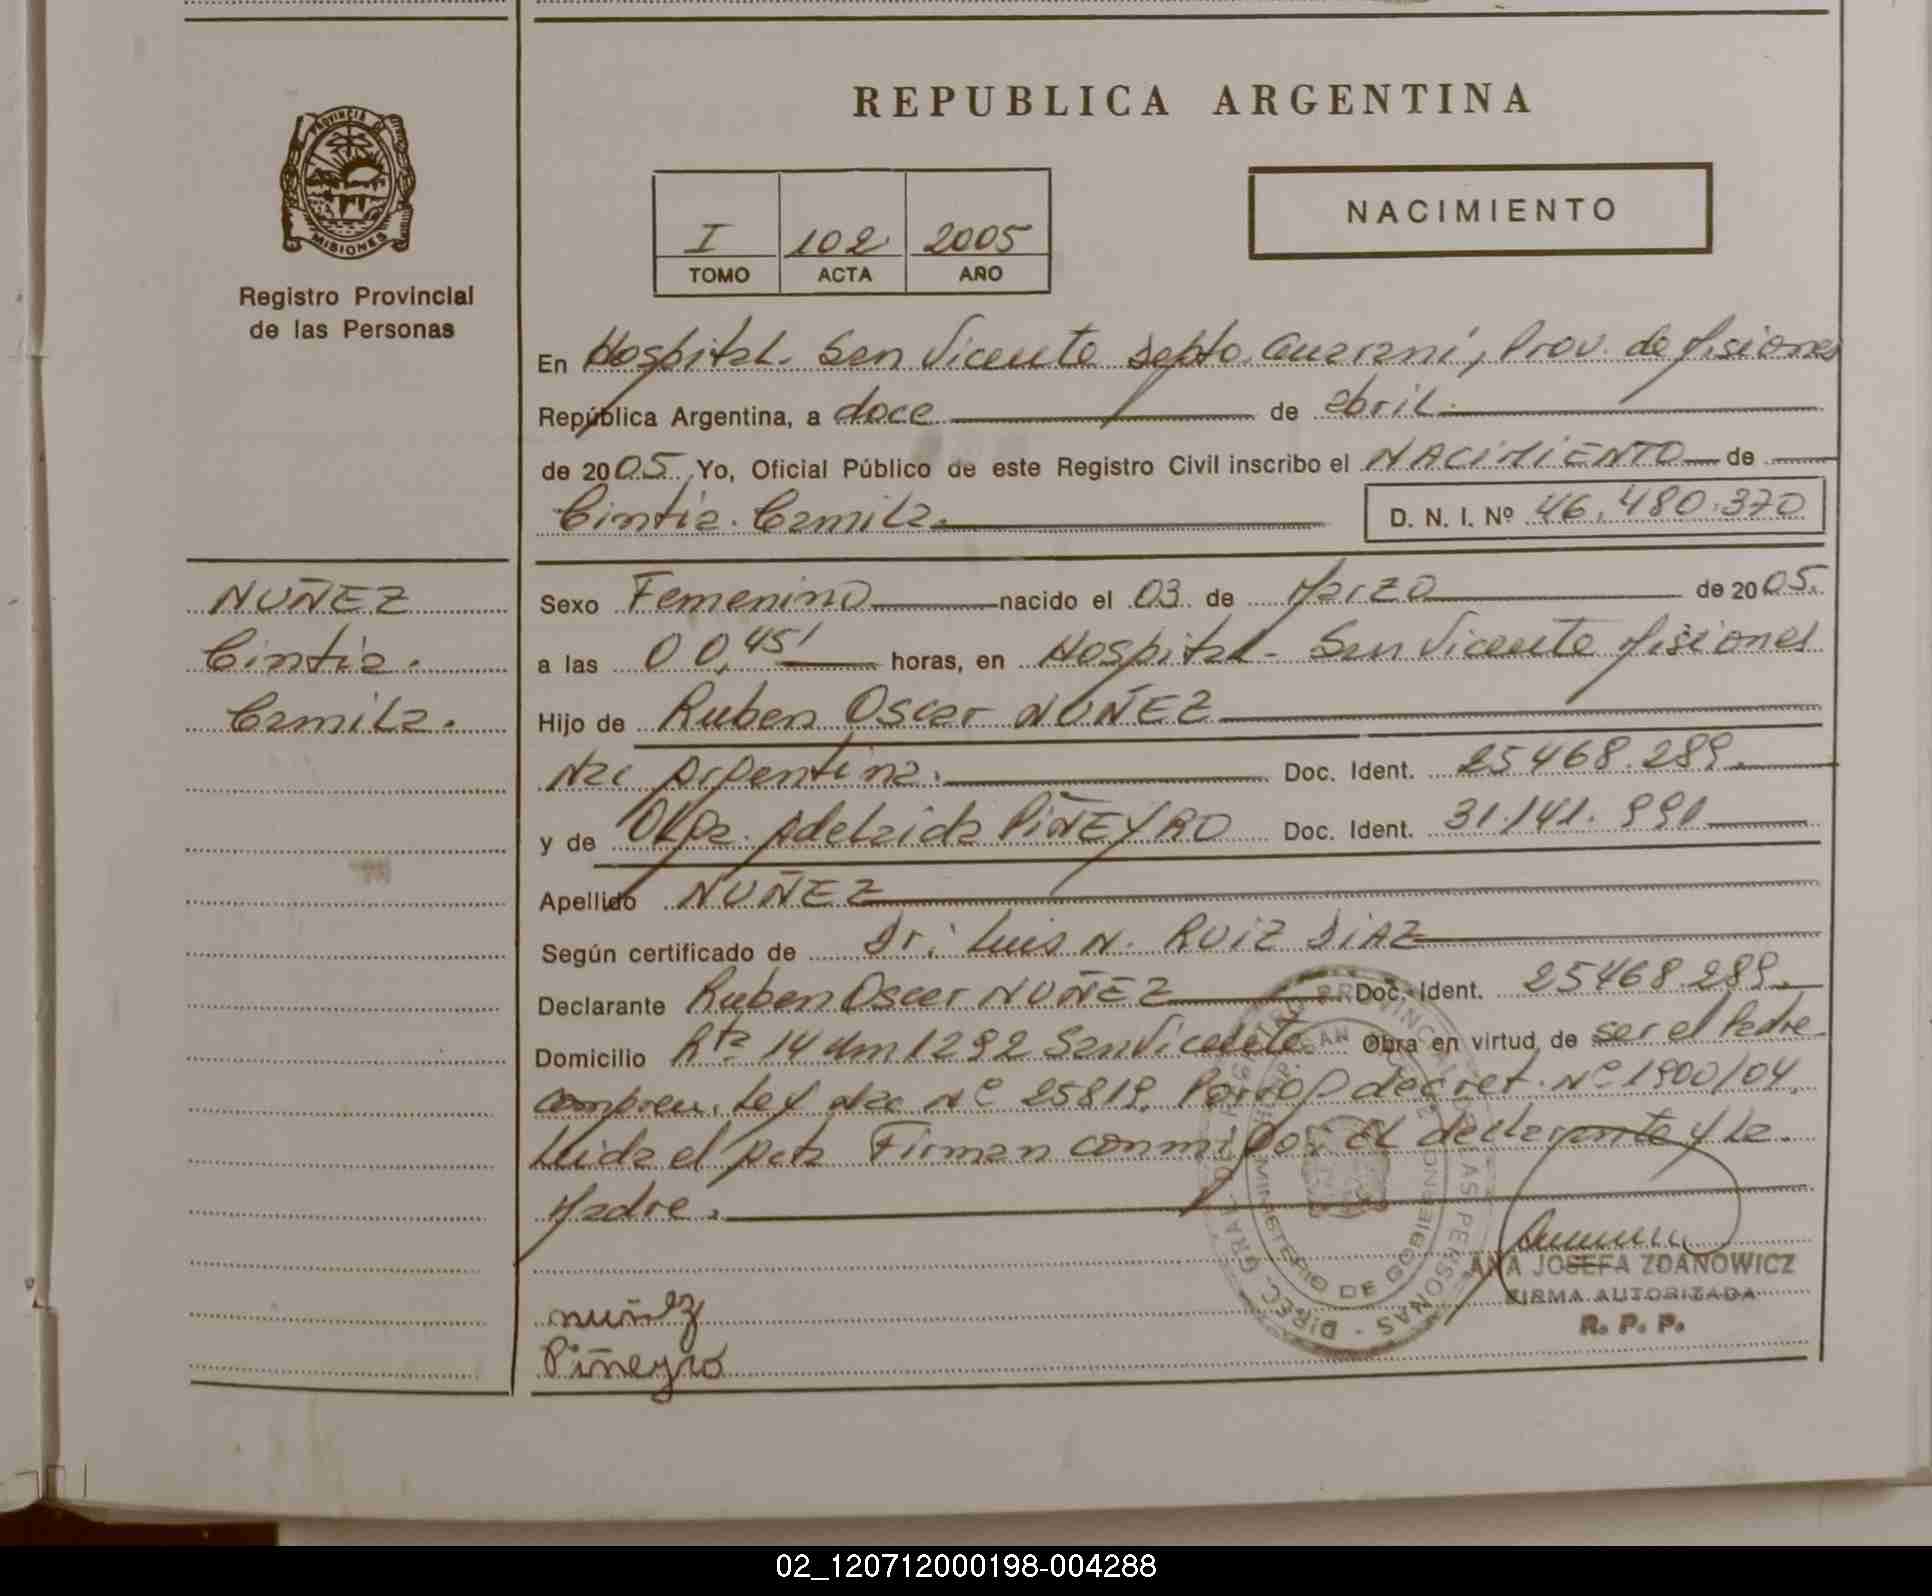 REPUBLICA ARGENTINA
PROVINCIA DE
MISIONES
Registro Provincial
de las Personas
I 102 2005
TOMO ACTA AÑO
NACIMIENTO
En Hospital. San Vicente Depto. Guarani, Prov. de Misiones
República Argentina, a doce de abril.
de 2005. Yo, Oficial Público de este Registro Civil inscribo el NACIMIENTO de
Cintia. Camila. D. N. I. Nº 46.480.370
NUÑEZ
Cintia.
Camila.
Sexo Femenino nacido el 03. de Marzo de 2005.
a las 00,45' horas, en Hospital - San Vicente Misiones
Hijo de Ruben Oscar NUÑEZ
Nac Argentina. Doc. Ident. 25468.289.
y de Olga. Adelaida PIÑEYRO Doc. Ident. 31.141.991
Apellido NUÑEZ
Según certificado de Dr. Luis N. RUIZ DIAZ
Declarante Ruben Oscar NUÑEZ Doc. Ident. 25468.289.
Domicilio Rta 14 Km 1292 San Vicente Obra en virtud de ser el Padre
compren. Ley Nac Nº 25819. Porrog decret. Nº 1900/04.
Leida el Acta Firman conmigo: El declarante y la.
Madre.
ANA JOSEFA ZDANOWICZ
FIRMA AUTORIZADA
R. P. P.
nuñez
Piñeyro
MINISTERIO DE GOBIERNO
02_120712000198-004288